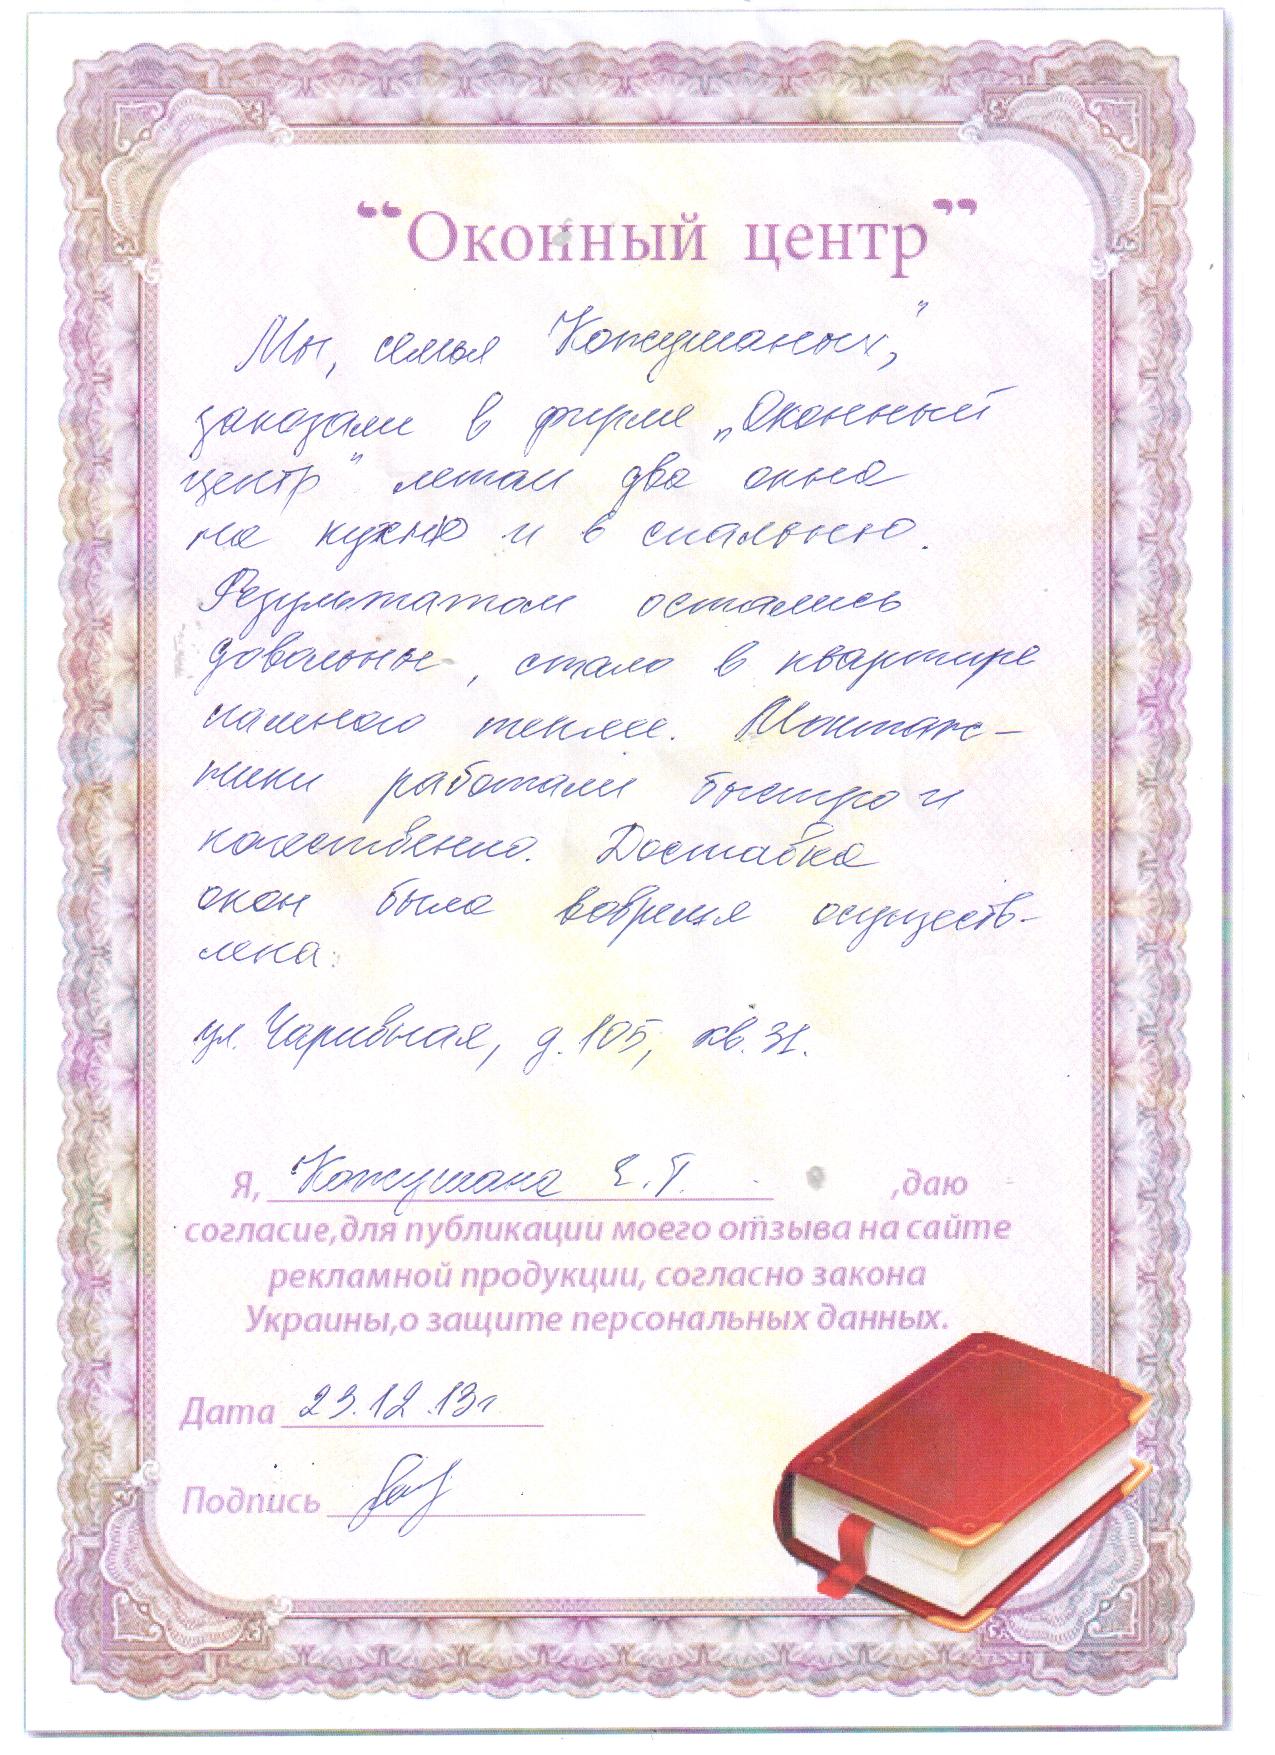 “Оконный центр”
Мы, семья "Кожушаных",
заказали в фирме „Оконный
центр" летом два окна
на кухню и в спальню.
Результатом остались
довольны, стало в квартире
намного теплее. Монтаж-
ники работали быстро и
качественно. Доставка
окон была вовремя осуществ-
лена.
ул. Чаривная, д. 105, кв. 31.
Я, Кожушана Е. Г. ,даю
согласие,для публикации моего отзыва на сайте
рекламной продукции, согласно закона
Украины,о защите персональных данных.
Дата 23.12.13г
Подпись